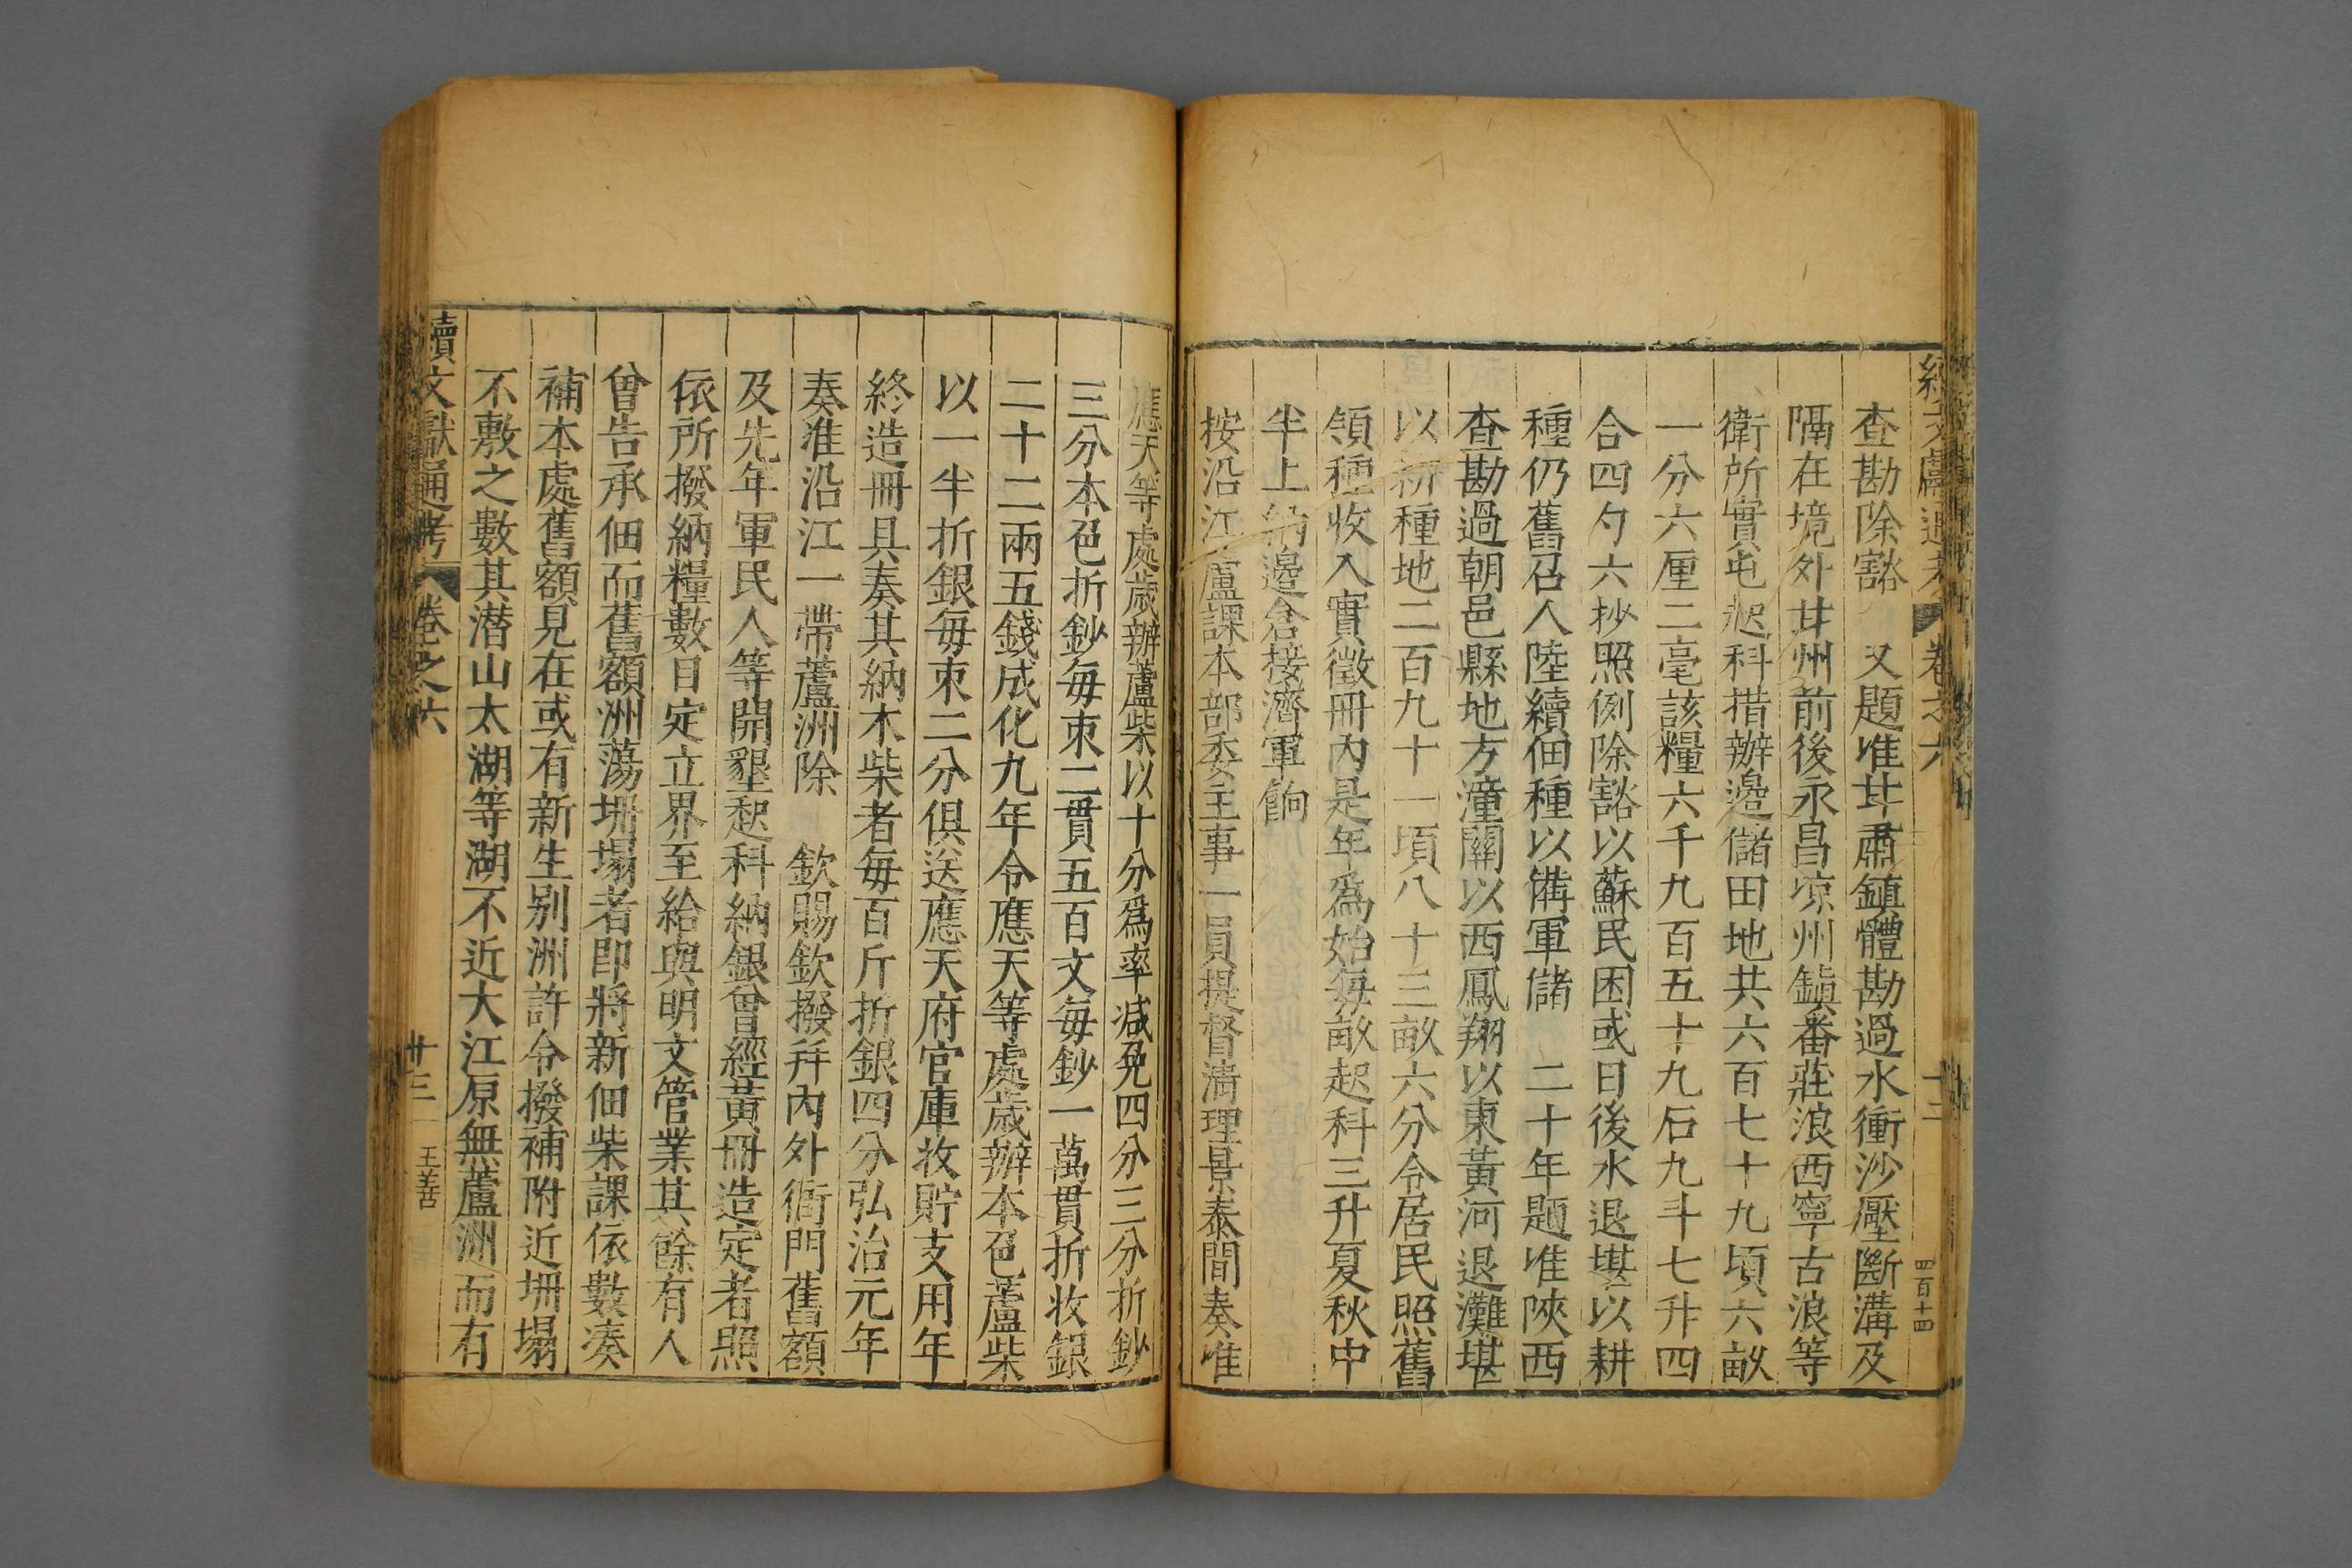 文獻通考 卷之六
十二
四百十四
查勘除豁 又題准甘肅鎮體勘過水衝沙壓斷溝及
隔在境外甘州前後永昌凉州鎮番莊浪西寧古浪等
衛所實屯起科措辦邊儲田地共六百七十九頃六畝
一分六厘二毫該糧六千九百五十九石九斗七升四
合四勺六抄照例除豁以蘇民困或日後水退堪以耕
種仍舊召人陸續佃種以備軍儲 二十年題准陝西
查勘過朝邑縣地方潼關以西鳳翔以東黃河退灘堪
以新種地二百九十一頃八十三畝六分令居民照舊
領種收入實徵冊內是年爲始每畝起科三升夏秋中
半上納邊倉接濟軍餉
按沿江蘆課本部委主事一員提督淸理景泰間奏准
應天等處歲辦蘆柴以十分爲率减免四分三分折鈔
三分本色折鈔每束二貫五百文每鈔一萬貫折收銀
二十二兩五錢成化九年令應天等處歲辦本色蘆柴
以一半折銀每束二分俱送應天府官庫收貯支用年
終造冊具奏其納木柴者每百斤折銀四分弘治元年
奏准沿江一帶蘆洲除 欽賜欽撥幷內外衙門舊額
及先年軍民人等開墾起科納銀曾經黃冊造定者照
依所撥納糧數目定立界至給與明文管業其餘有人
曾告承佃而舊額洲蕩坍塌者即將新佃柴課依數凑
補本處舊額見在或有新生别洲許令撥補附近坍塌
不敷之數其潜山太湖等湖不近大江原無蘆洲而有
續文獻通考 卷之六
廿三
王善